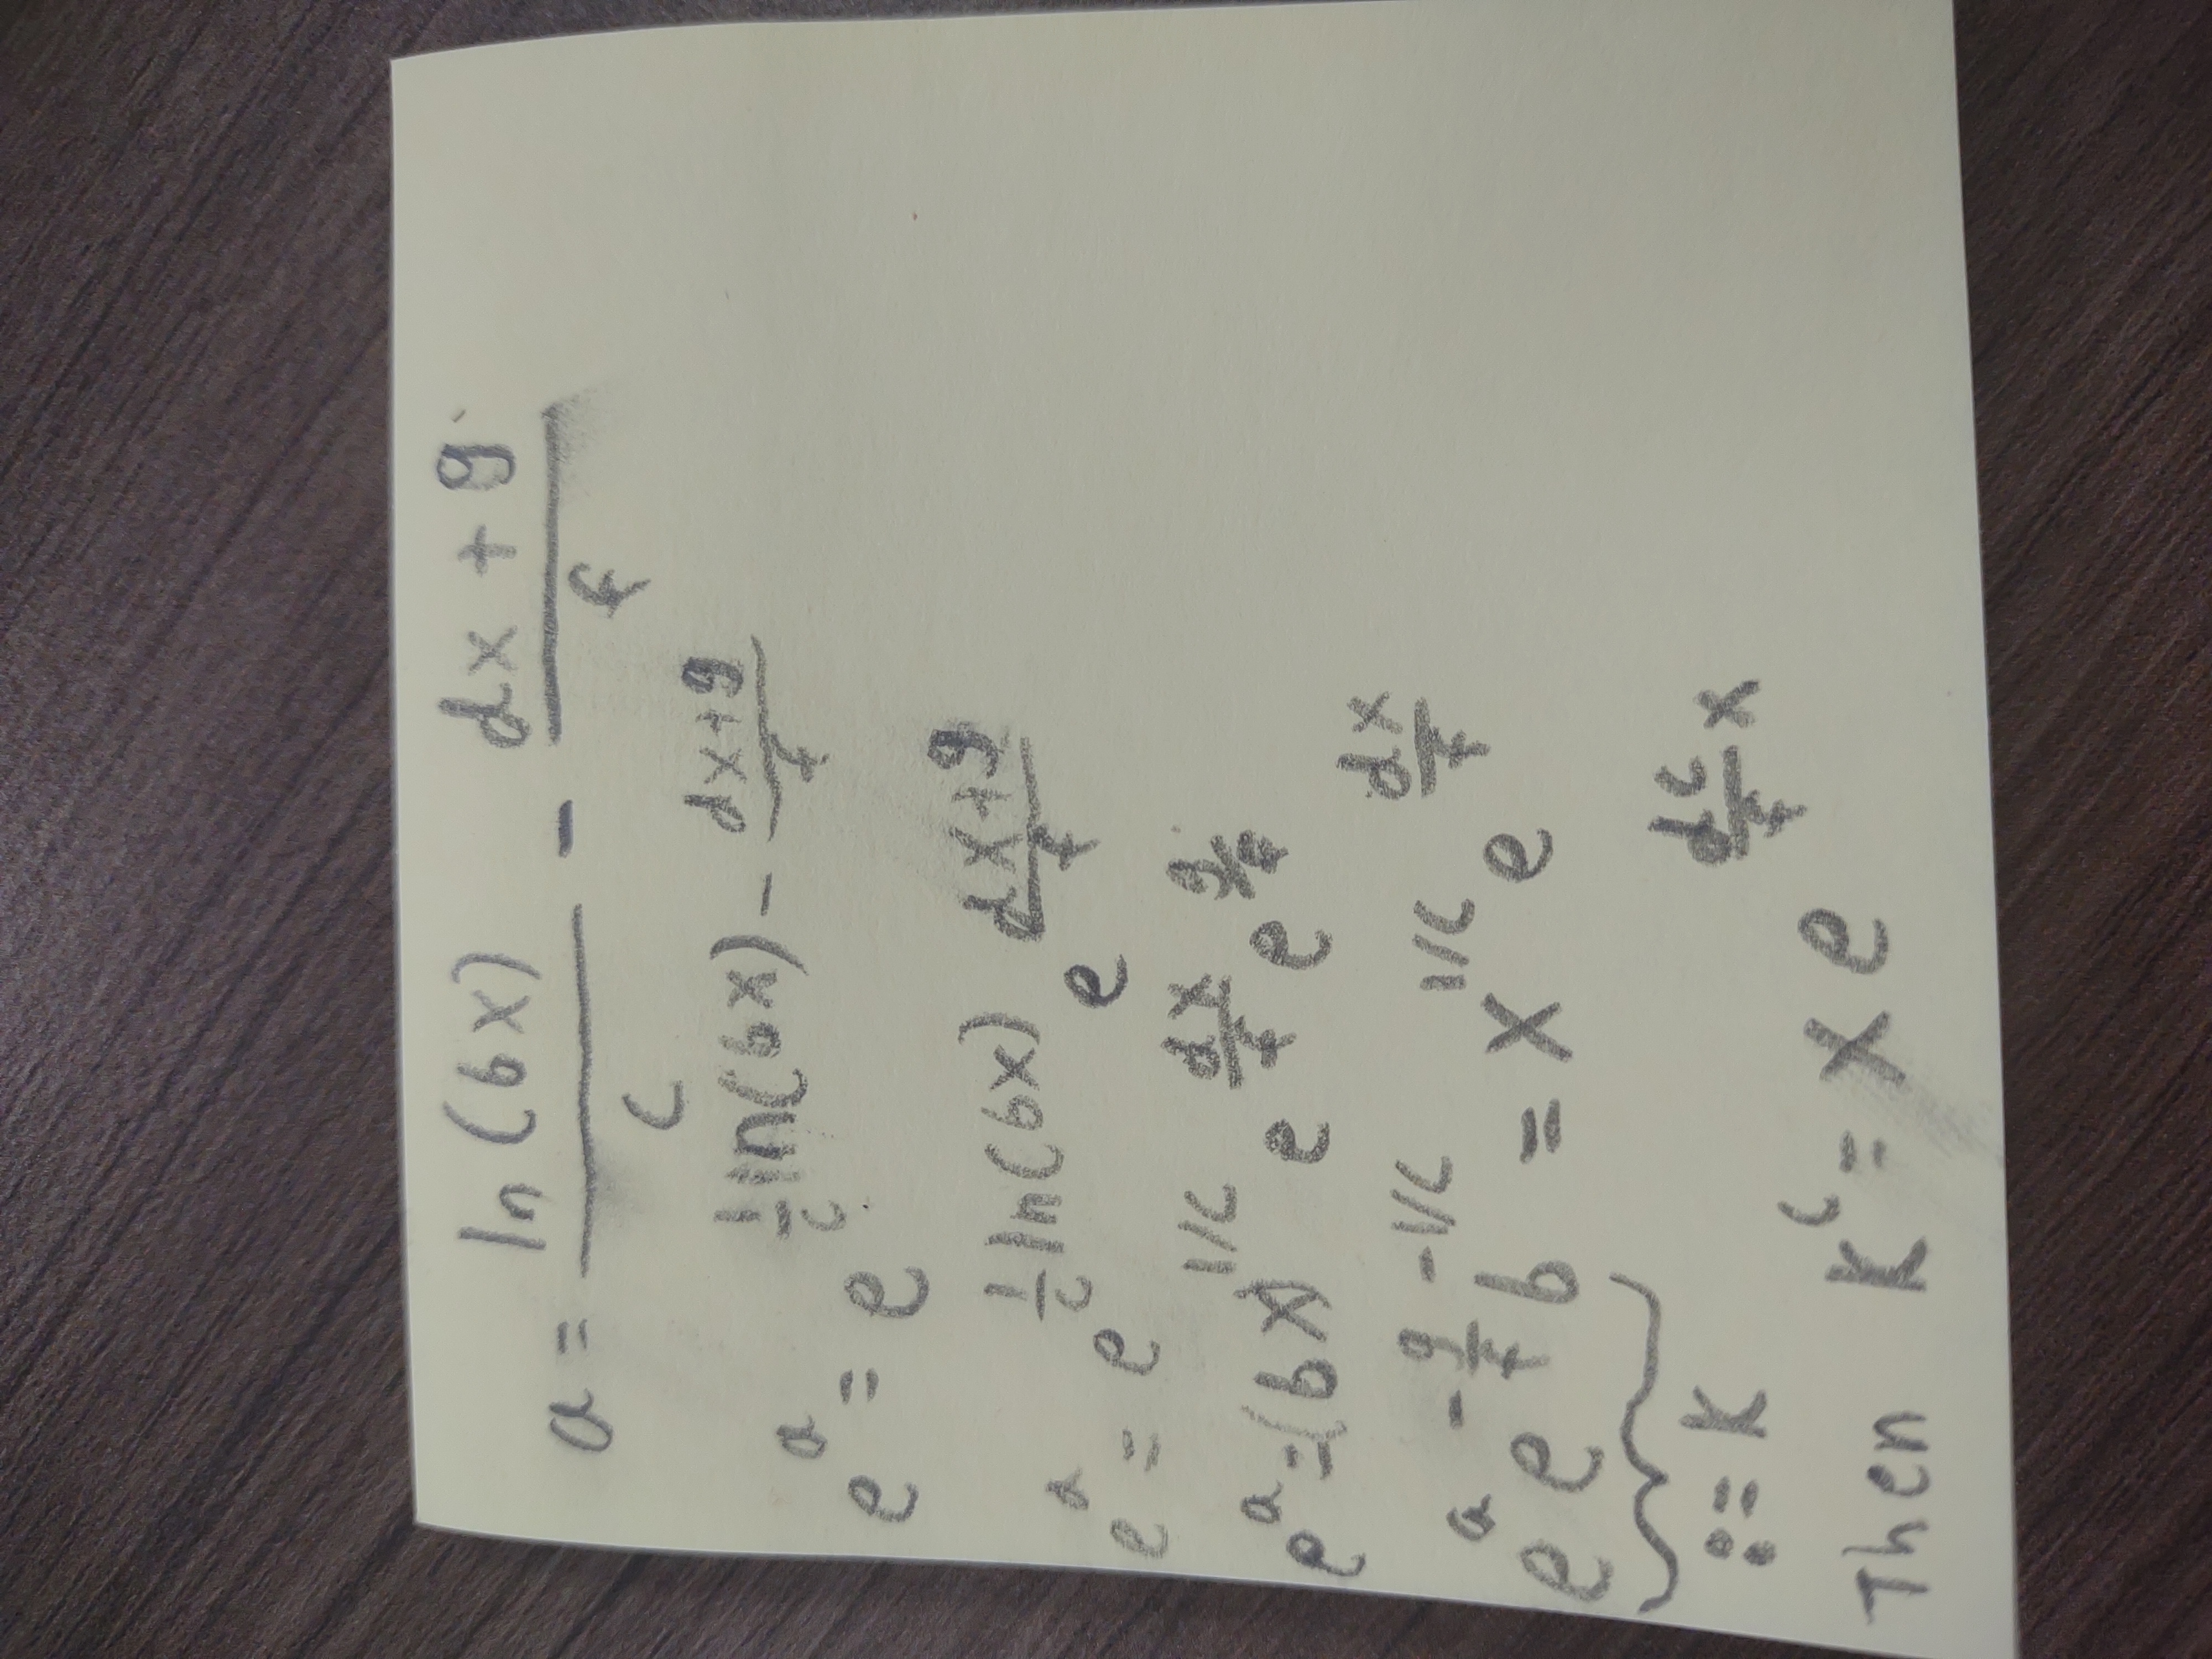 a = ln(bx)/c - (dx + g)/f
e^a = e^(1/c ln(bx) - (dx+g)/f)
e^a = e^(1/c ln(bx)) e^((dx+g)/f)
e^a = (bx)^(1/c) e^(dx/f) e^(g/f)
e^a e^(-g/f) b^(-1/c) = x^(1/c) e^(dx/f)
:= K
Then K^c = x e^(dc/f x)